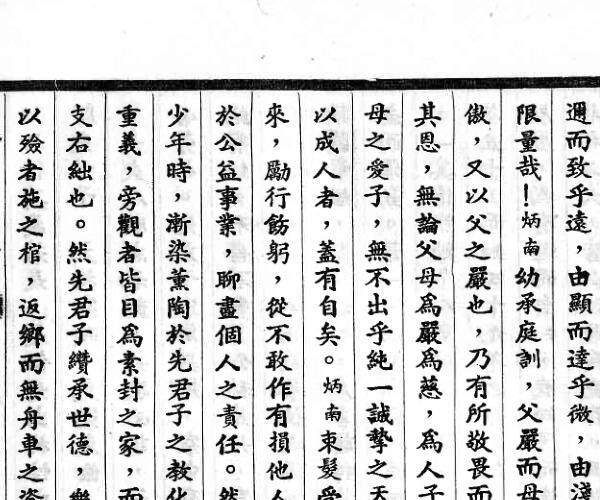 邇而致乎遠，由顯而達乎微，由淺
限量哉！炳南幼承庭訓，父嚴而母
傲，又以父之嚴也，乃有所敬畏而
其恩，無論父母為嚴為慈，為人子
母之愛子，無不出乎純一誠摯之天
以成人者，蓋有自矣。炳南束髮受
來，勵行飭躬，從不敢作有損他人
於公益事業，聊盡個人之責任。然
少年時，漸染薰陶於先君子之教化
重義，旁觀者皆目為素封之家，而
支右絀也。然先君子纘承世德，樂
以殮者施之棺，返鄉而無舟車之資